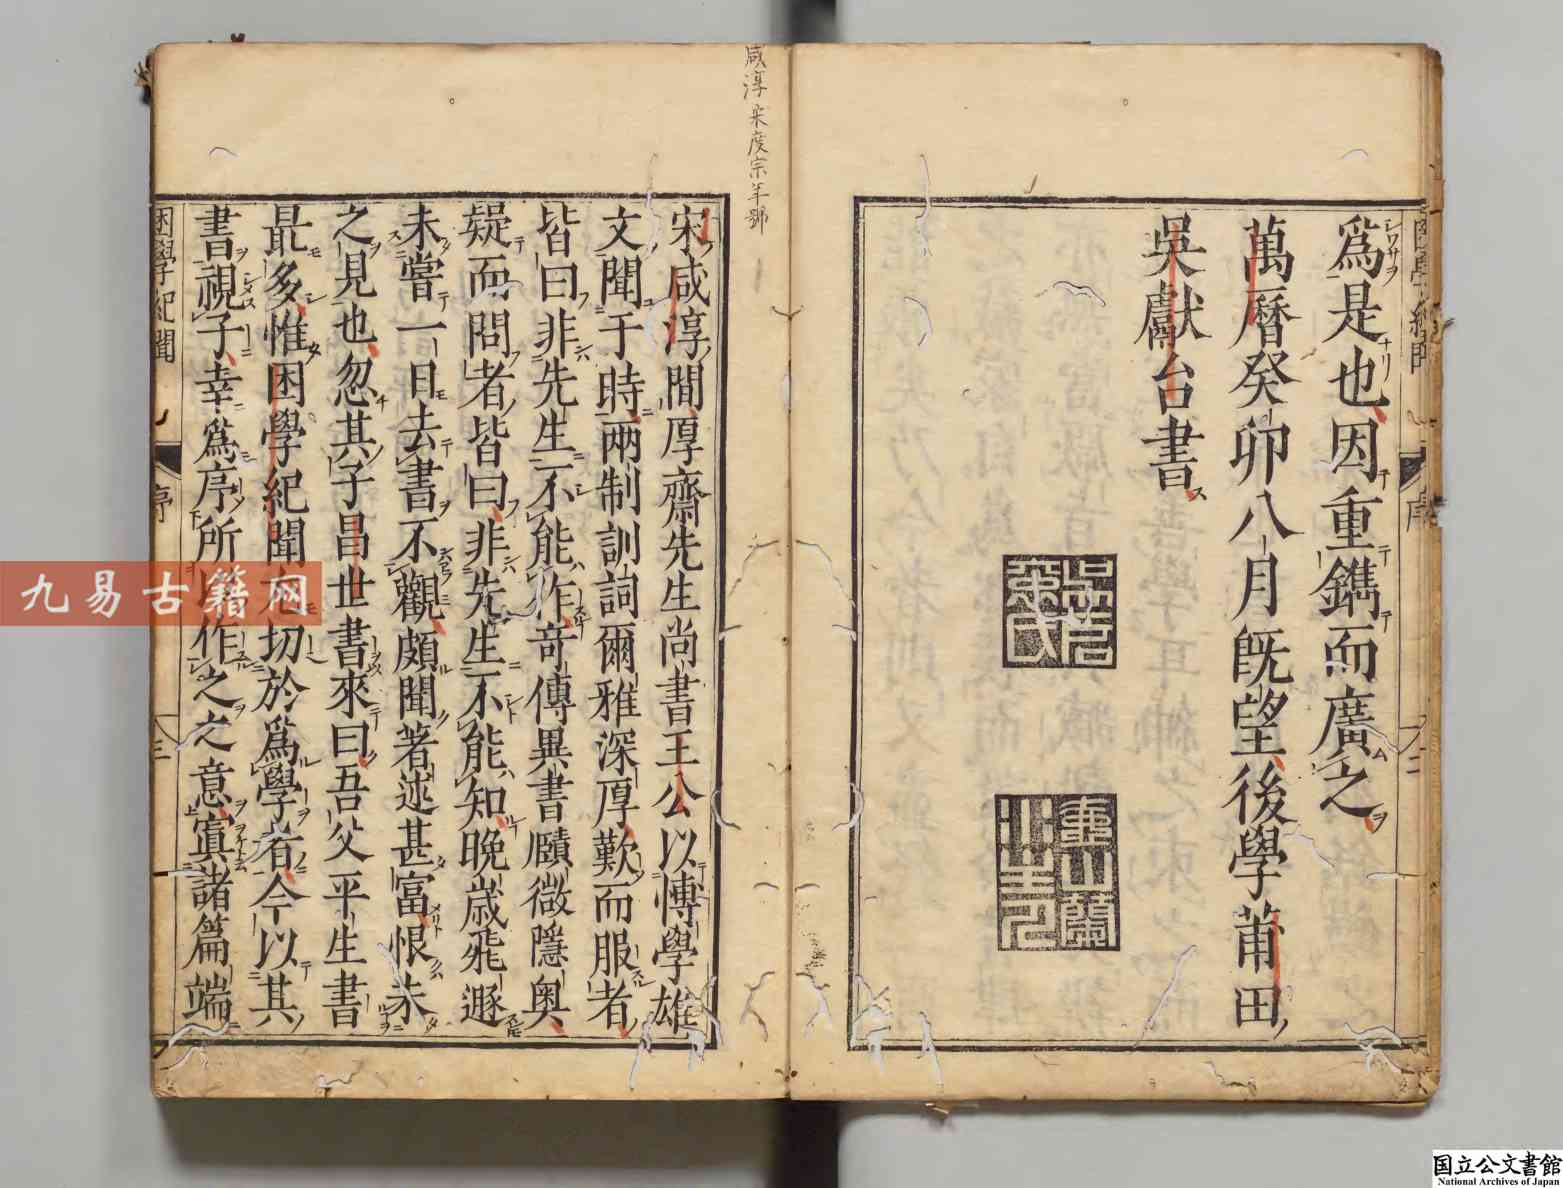 爲是也因重鐫而廣之
萬曆癸卯八月旣望後學莆田
吳獻台書
咸淳宋度宗年號
宋咸淳間厚齋先生尚書王公以愽學雄
文聞于時兩制訓詞爾雅深厚歎而服者
皆曰非先生不能作竒傳異書賾微隱奧
疑而問者皆曰非先生不能知晩歲飛遯
未嘗一日去書不觀頗聞著述甚富恨未
之見也忽其子昌世書來曰吾父平生書
最多惟困學紀聞尤切於爲學者今以其
書視子幸爲序所以作之之意寘諸篇端
困學紀聞
序
三
九易古籍网
国立公文書館
National Archives of Japan